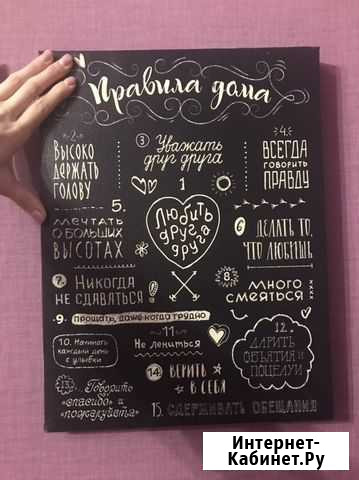 Правила дома
2.
Высоко
держать
голову
3 Уважать
друг друга
4.
Всегда
говорить
правду
1
Любить
друг
друга
5.
Мечтать
о больших
высотах
6 Делать то,
что любишь
7. Никогда
не сдаваться!
8.
Много
смеяться
9. Прощать, даже когда трудно
10. Начинать
каждый день
с улыбки
11
Не лениться
12.
Дарить
объятия и
поцелуи
13. Говорить
«спасибо» и
«пожалуйста»
14. Верить
в себя
15. Сдерживать обещания
Интернет-
Кабинет.Ру